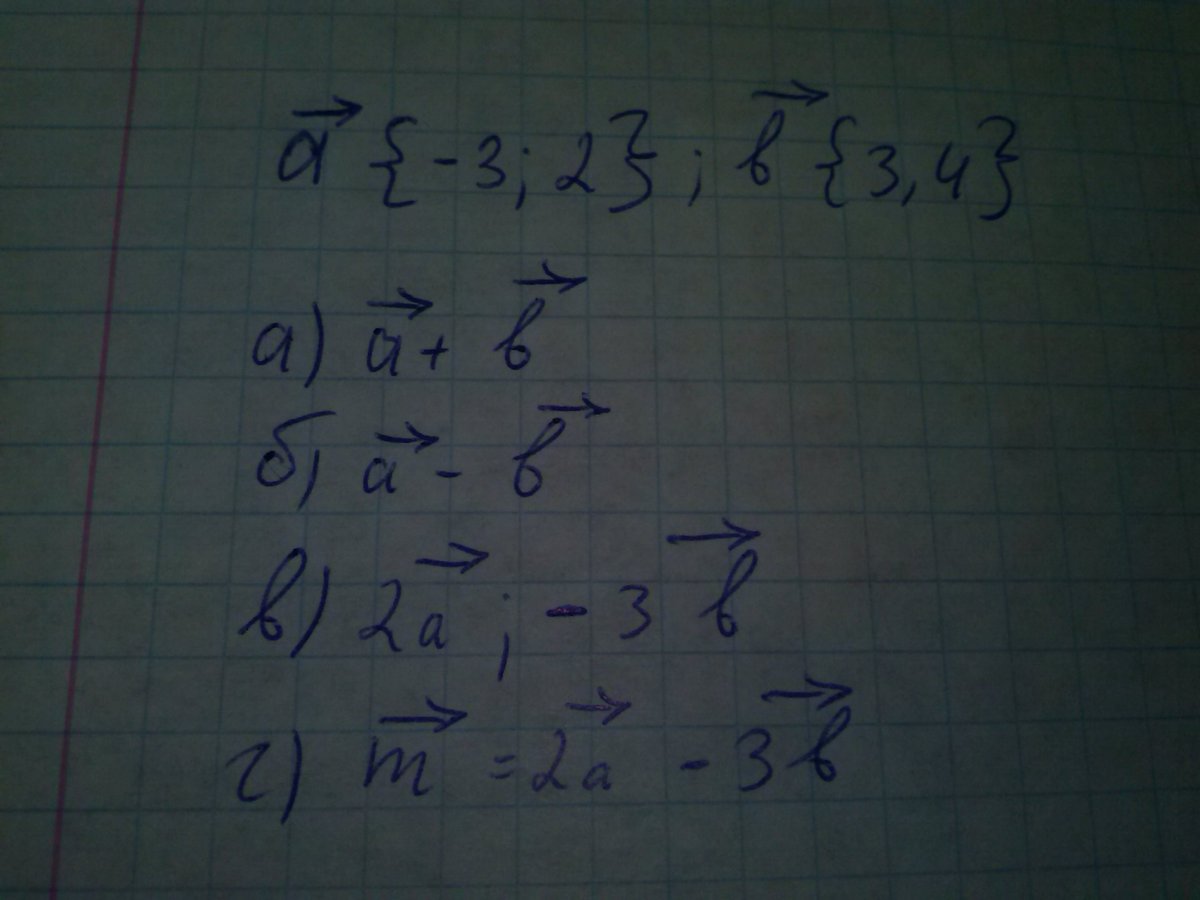 a⃗ {-3; 2}; b⃗ {3,4}
а) a⃗ + b⃗
б) a⃗ - b⃗
в) 2a⃗ ; - 3 b⃗
г) m⃗ = 2a⃗ - 3b⃗